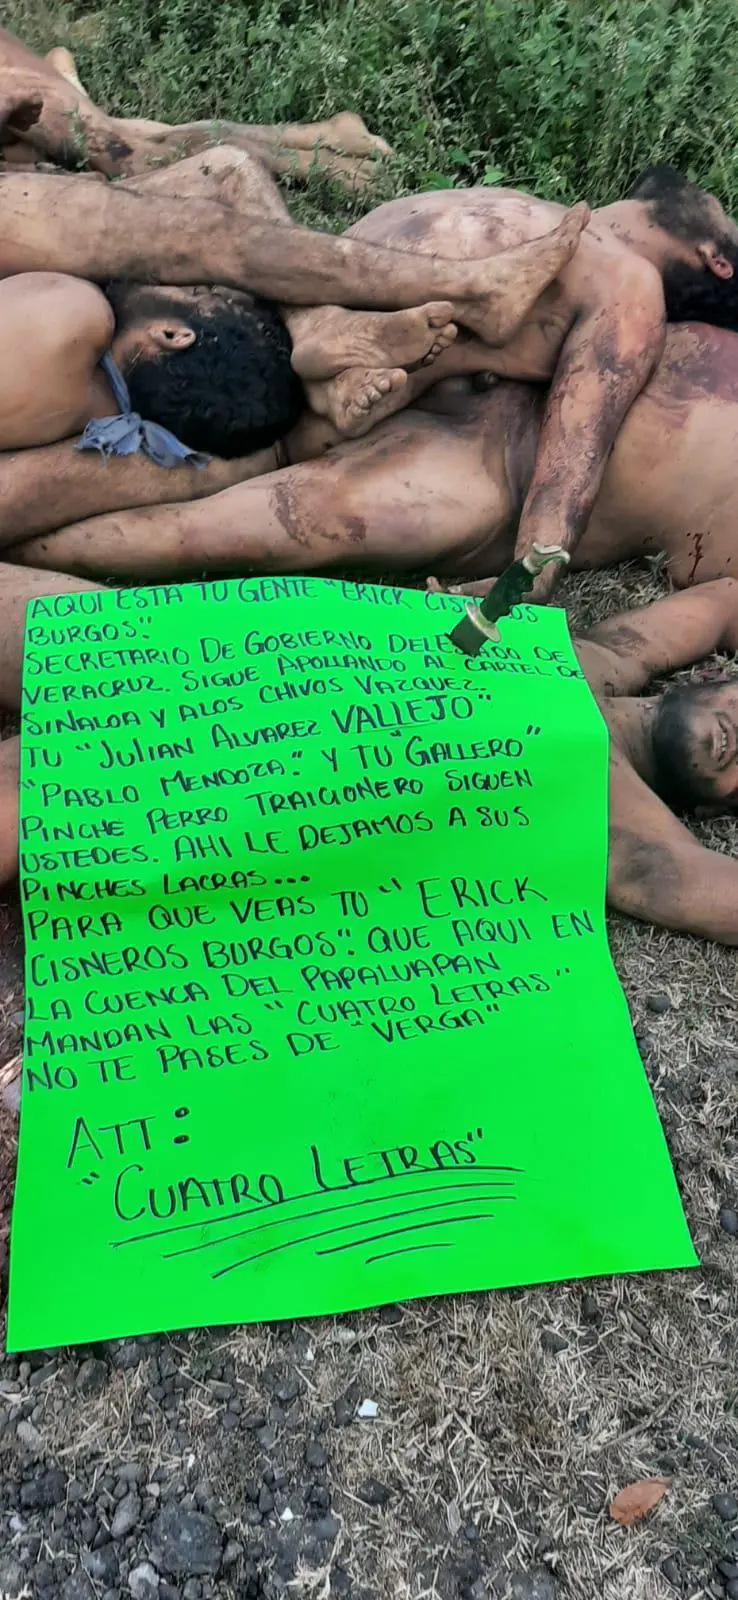 AQUI ESTA TU GENTE "ERICK CISNEROS
BURGOS".
SECRETARIO DE GOBIERNO DELEGADO DE
VERACRUZ. SIGUE APOLLANDO AL CARTEL DE
SINALOA Y ALOS CHIVOS VAZQUEZ.
TU "JULIAN ALVAREZ VALLEJO"
"PABLO MENDOZA". Y TU "GALLERO"
PINCHE PERRO TRAICIONERO SIGUEN
USTEDES. AHI LE DEJAMOS A SUS
PINCHES LACRAS...
PARA QUE VEAS TU "ERICK
CISNEROS BURGOS". QUE AQUI EN
LA CUENCA DEL PAPALUAPAN
MANDAN LAS "CUATRO LETRAS"
NO TE PASES DE "VERGA"
ATT:
"CUATRO LETRAS"